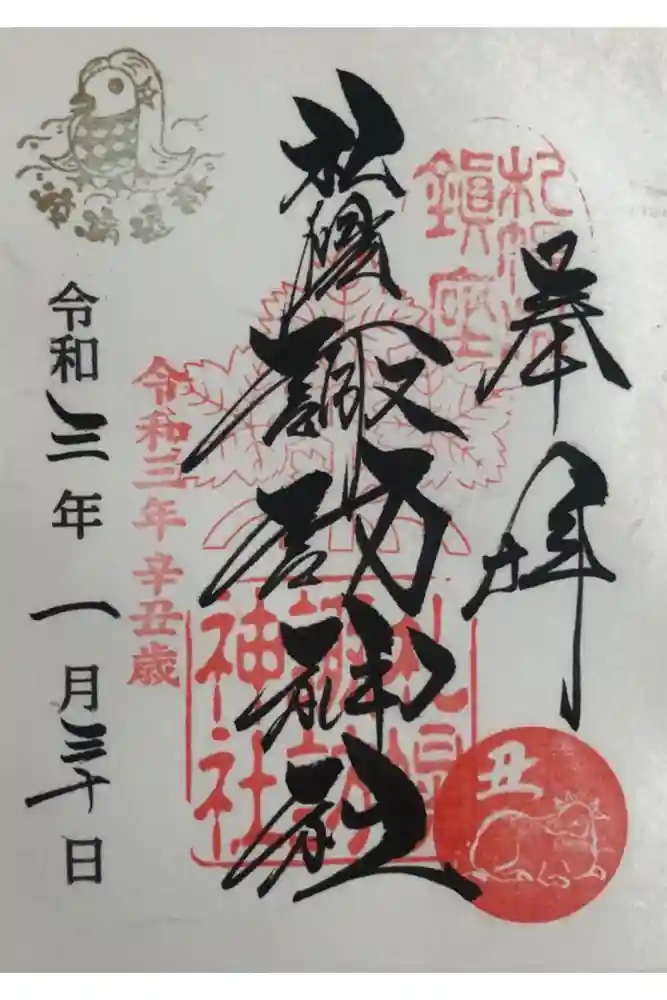 奉拝
鎮座
札幌諏訪神社
札幌
諏訪
神社
丑
令和三年辛丑歳
令和三年一月三十日